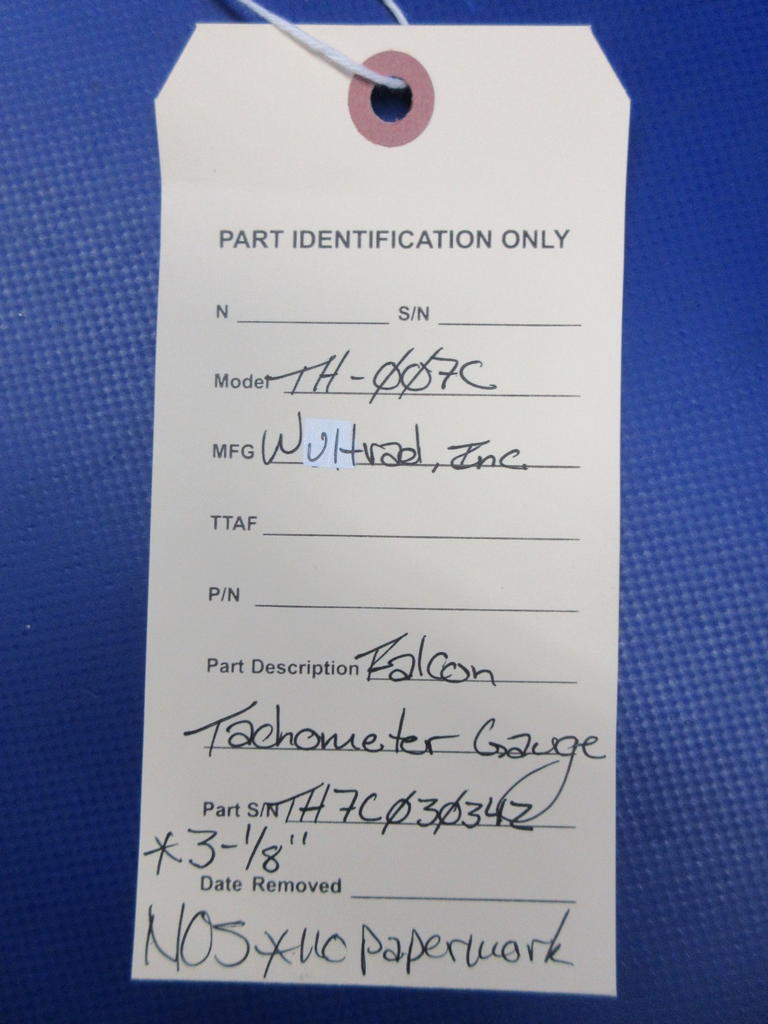 PART IDENTIFICATION ONLY
N S/N
Model TH-007C
MFG Wultrad, Inc.
TTAF
P/N
Part Description Falcon
Tachometer Gauge
Part S/N TH7C030342
*3-1/8"
Date Removed
NOS * no paperwork